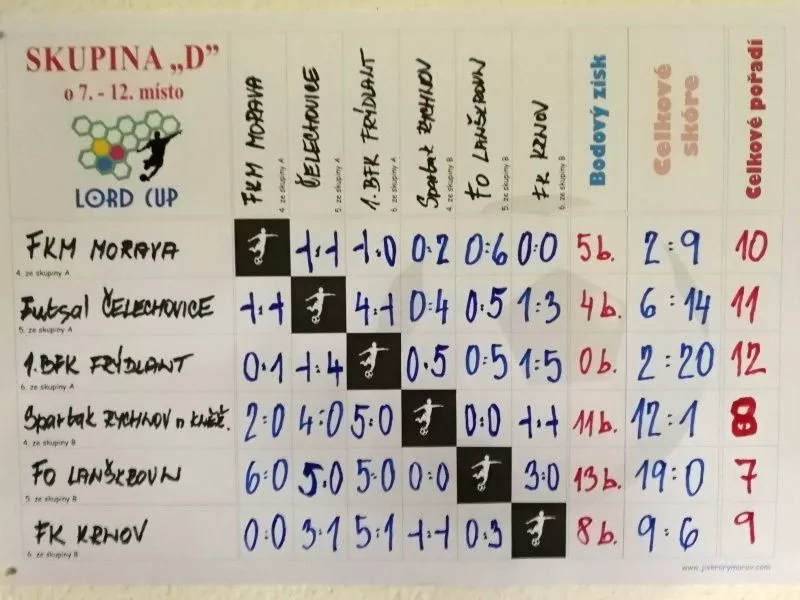 SKUPINA „D"
o 7. - 12. místo
LORD CUP
FKM MORAVA
4. ze skupiny A
ČELECHOVICE
5. ze skupiny A
1.BFK FRÝDLANT
6. ze skupiny A
Spartak RYCHNOV
4. ze skupiny B
FO LANŠKROUN
5. ze skupiny B
FK KRNOV
6. ze skupiny B
Bodový zisk
Celkové skóre
Celkové pořadí
FKM MORAVA 1:1 1:0 0:2 0:6 0:0 5b. 2:9 10
4. ze skupiny A
Futsal ČELECHOVICE 1:1 4:1 0:4 0:5 1:3 4b. 6:14 11
5. ze skupiny A
1.BFK FRÝDLANT 0:1 1:4 0:5 0:5 1:5 0b. 2:20 12
6. ze skupiny A
Spartak RYCHNOV n KNĚŽ. 2:0 4:0 5:0 0:0 1:1 11b. 12:1 8
4. ze skupiny B
FO LANŠKROUN 6:0 5:0 5:0 0:0 3:0 13b. 19:0 7
5. ze skupiny B
FK KRNOV 0:0 3:1 5:1 1:1 0:3 8b. 9:6 9
6. ze skupiny B